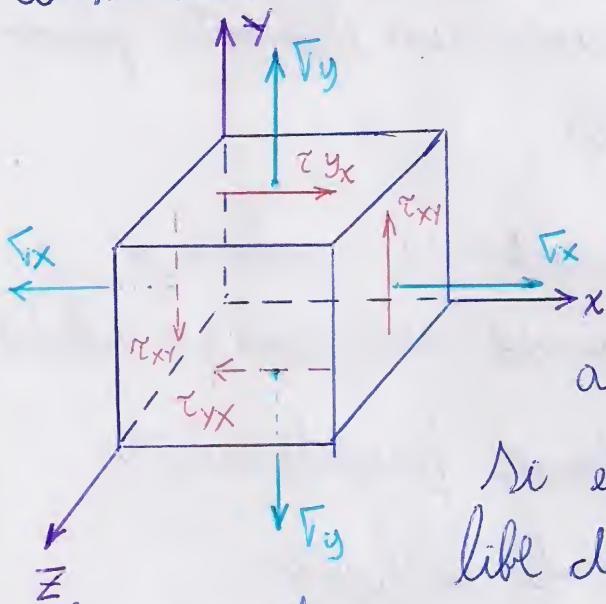 Y
σy
τyx
τxy
σx
σx
x
τxy
τyx
a
si e
σy
libe d
Z